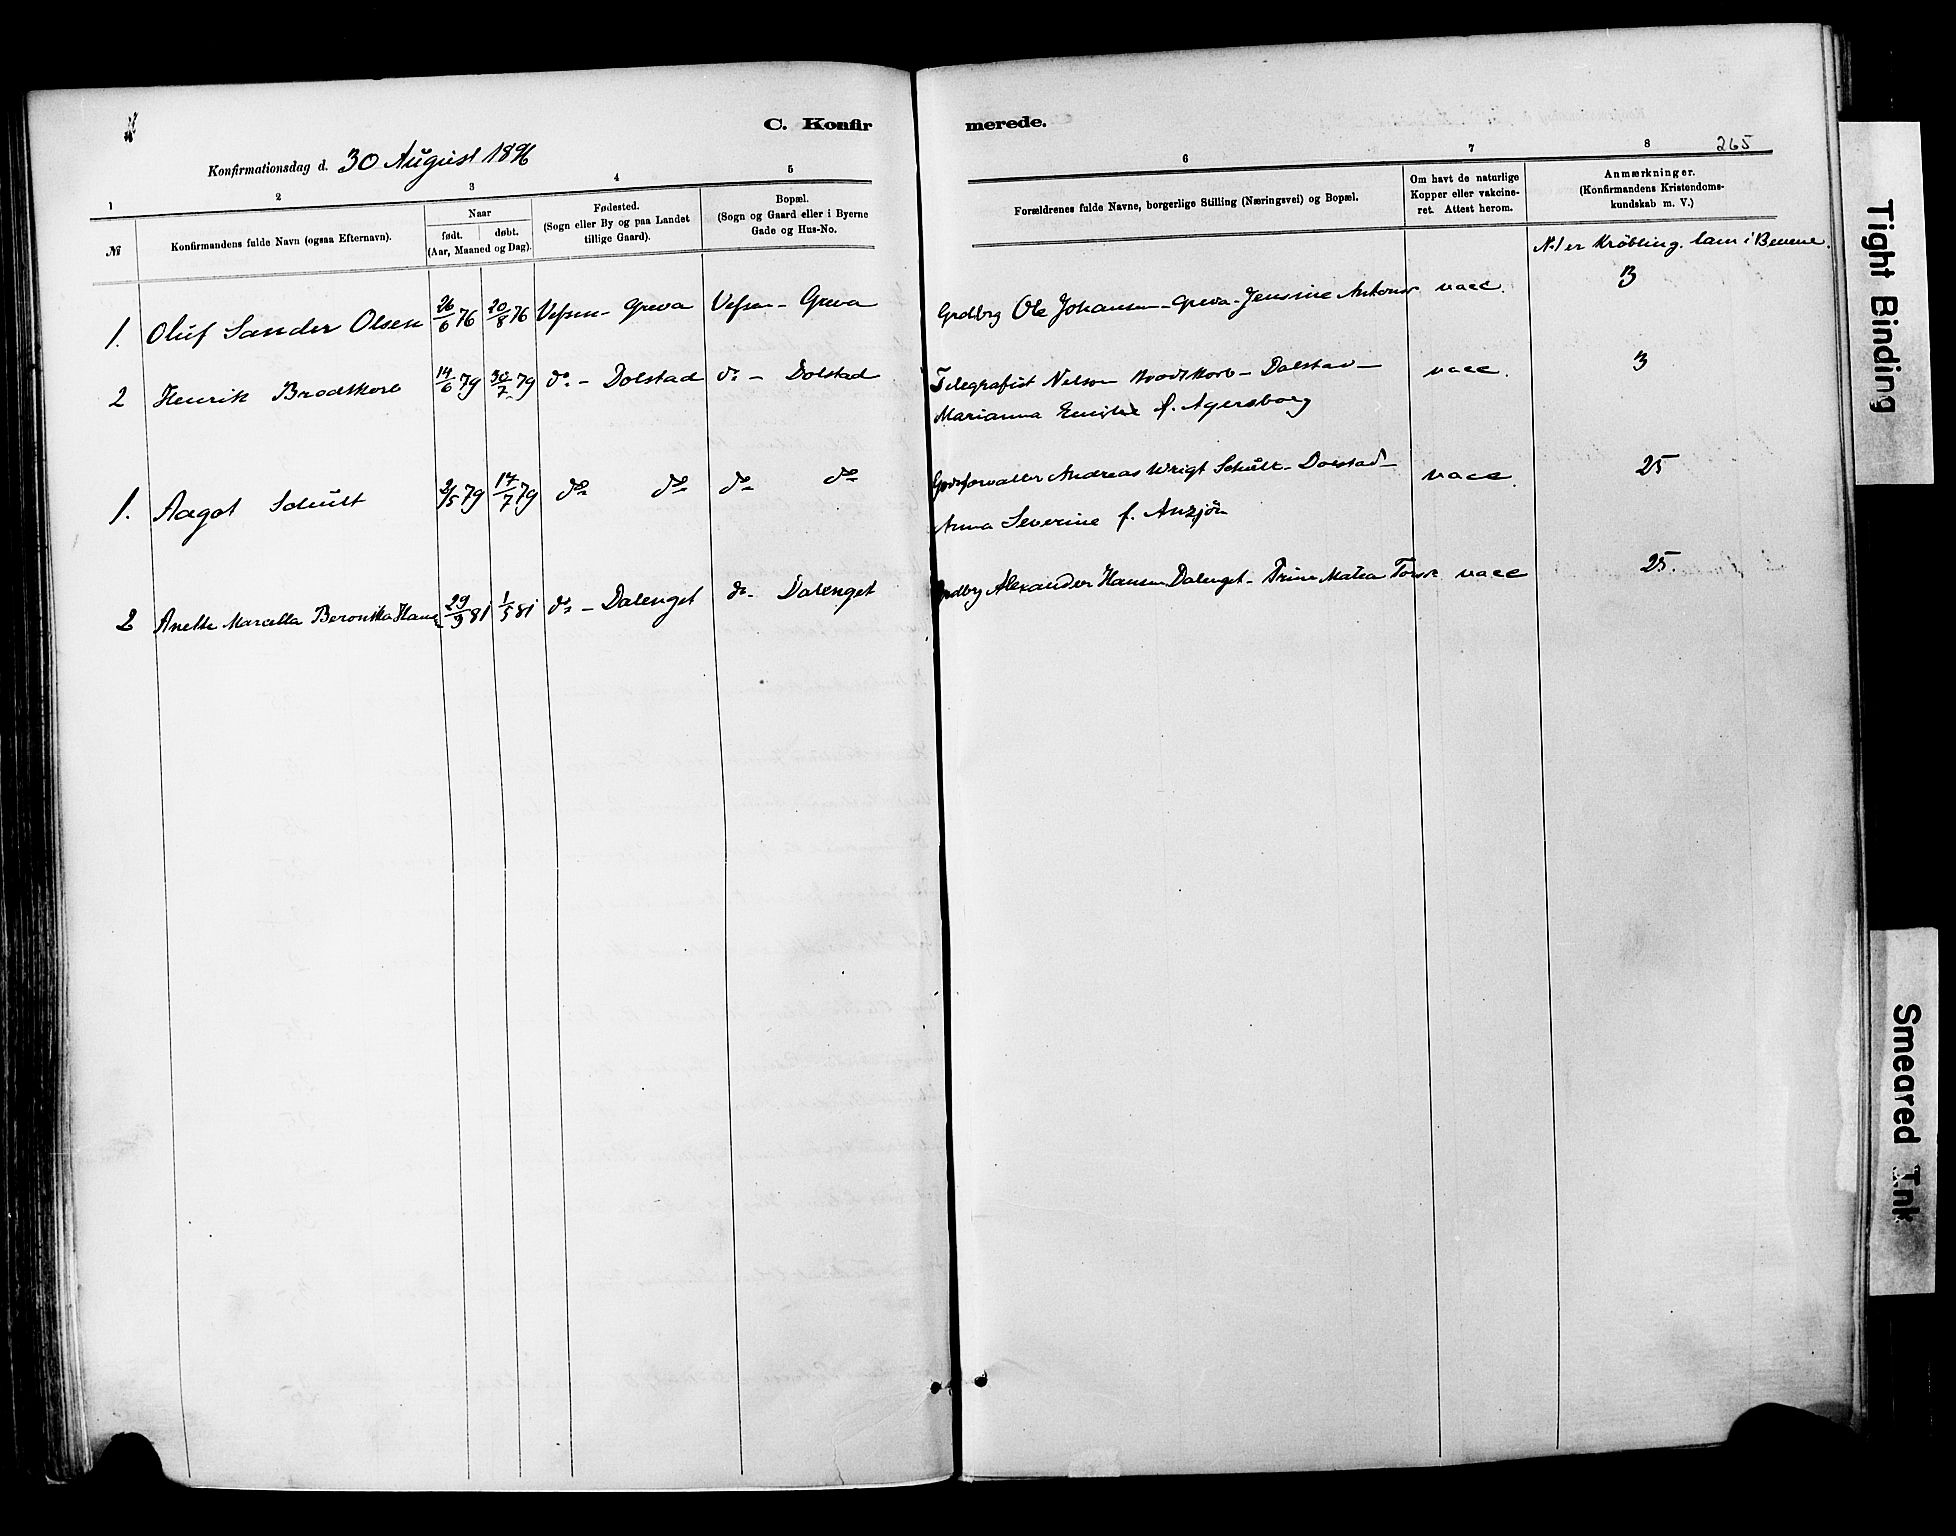 C. Konfirmerede.
265
Konfirmationsdag d. 30 August 1896
1 2 3 4 5 6 7 8
№
Konfirmandens fulde Navn (ogsaa Efternavn).
Naar
født. døbt.
(Aar, Maaned og Dag).
Fødested.
(Sogn eller By og paa Landet
tillige Gaard).
Bopæl.
(Sogn og Gaard eller i Byerne
Gade og Hus-No.
Forældrenes fulde Navne, borgerlige Stilling (Næringsvei) og Bopæl.
Om havt de naturlige
Kopper eller vakcine-
ret. Attest herom.
Anmærkninger.
(Konfirmandens Kristendoms-
kundskab m. V.)
N.1 er Krøbling. lam i Benene.
1. Oluf Sander Olsen 26/6 76 20/8 76 Vefsen - Greva Vefsen - Greva Grdbrg Ole Johansen - Greva - Jensine vacc. 3
2 Henrik Brodtkorb 14/6 79 30/7 79 do - Dolstad do - Dolstad Telegrafist Brodtkorb - Dolstad - vacc. 3
Marianna f. Agersborg
1. Aagot Schult 2/5 79 17/7 79 do do do do Andreas Wrigt Schult - Dolstad - vacc. 25
Anna Severine f.
2 Anette Marcella Beronika 29/3 81 1/5 81 do - Dalenget do - Dalenget Alexander Hansen Dalenget - Trine vacc 25.
Tight Binding
Smeared Ink